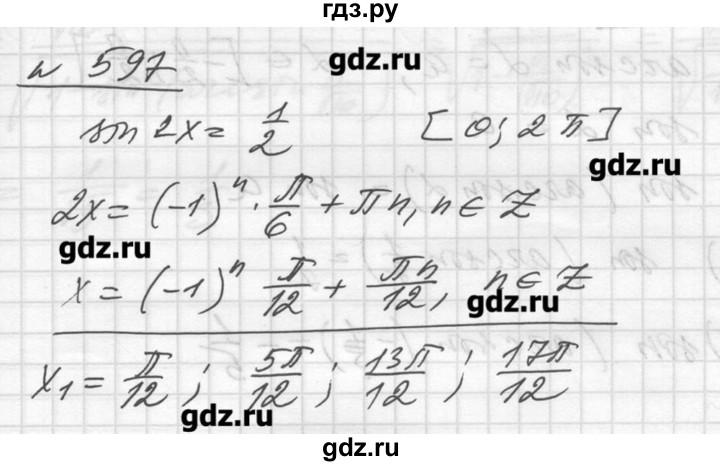 гдз.ру
№ 597
gdz.ru
sin 2x = 1/2 [0; 2π]
gdz.ru
2x = (-1)^n · π/6 + πn, n ∈ Z
gdz.ru
x = (-1)^n π/12 + πn/12, n ∈ Z
gdz.ru
x₁ = π/12 ; 5π/12 ; 13π/12 ; 17π/12
gdz.ru
gdz.ru